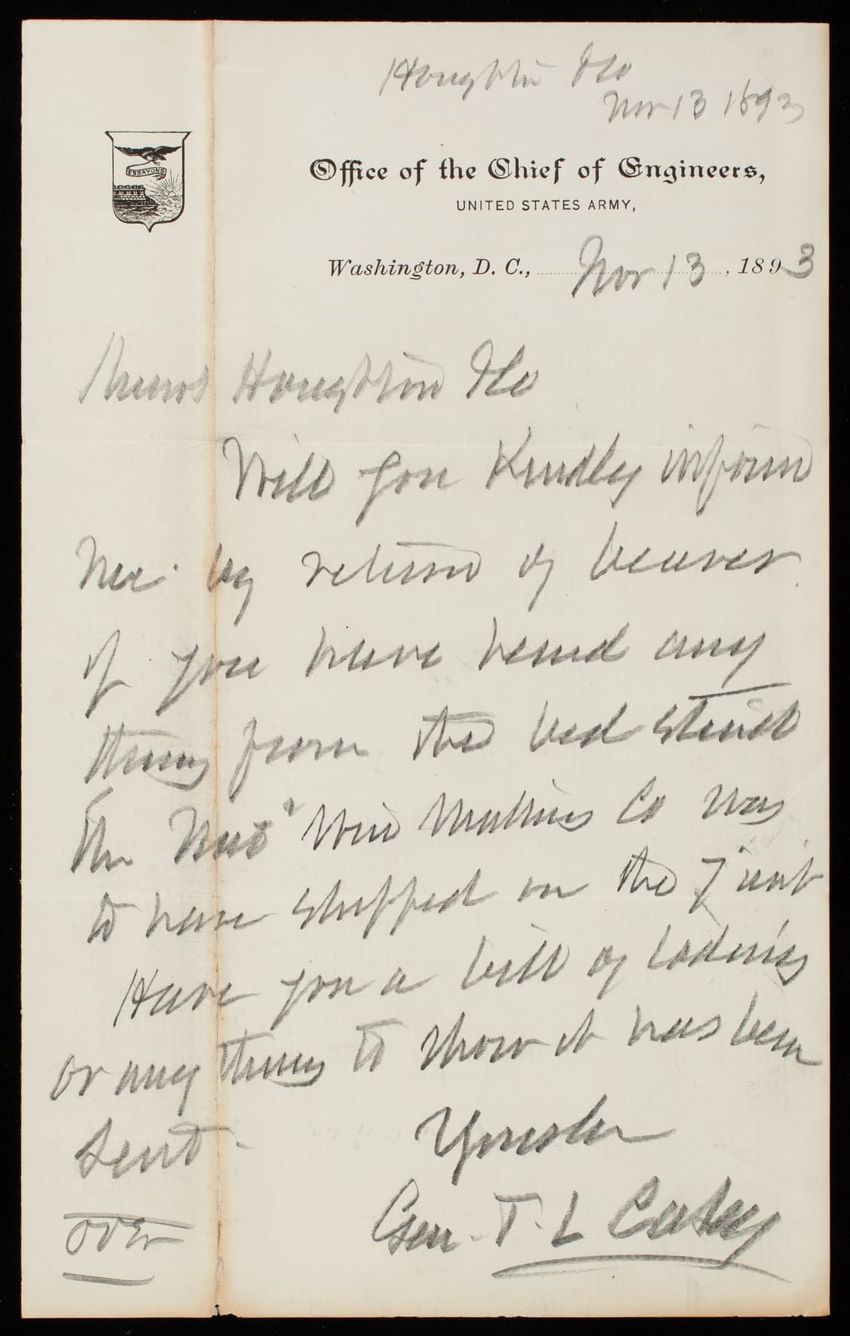 Houghton &Co
Nov 13 1893
ESSAYONS
Office of the Chief of Engineers,
UNITED STATES ARMY,
Washington, D. C., Nov 13, 1893
Messrs Houghton &Co
Will you kindly inform
me by return of bearer
if you have heard any
thing from the bed stead
The Nat'l Wire Mattress Co was
to have shipped on the 7 inst
Have you a bill of lading
or any thing to show it has been
sent
Yours &c
Gen. T. L Casey
over